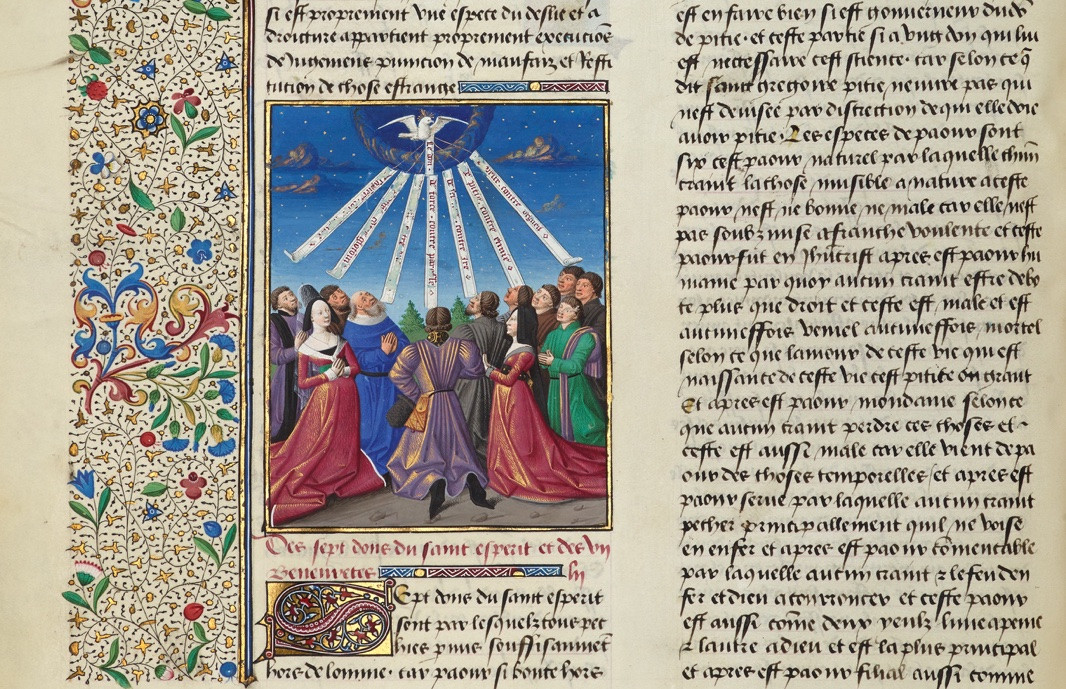 si est proprement une espece du deslie et a
droicture appartient proprement executiõs
de Jugemens punicion de maufaiz et Resti
tucion de chose estrange
le don
de force contre
de sci contre ire
de pitie contre envie
contre orgueil
Des sept dons du saint esperit et des vii
Beneuretes liii
Sept dons du sainct esperit
sont par lesquelz tous pec
hies p mis souffisanment
hors de lomme. car paour si boute hors
est en faire bien si est gouverneur du dõ
de pitie. et ceste partie si a ung don qui lui
est necessaire cest science. car selon ce q̃
dit saint gregoire pitie neuvre pas qui
nest devisee par discretion de qui elle doie
avoir pitie. Les especes de paour sont
six cest paour naturel par laquelle chũn
craint la chose nuisible a nature a ceste
paour nest ne bonne ne male car elle nest
pas soubz mise a franche voulente et ceste
paour fut en Jhũcrist apres est paour hu
maine par quoy aucun craint estre debo
te plus que droit et ceste est male et est
aucuneffois veniel aucuneffois mortel
selon ce que lamour de ceste vie qui est
naissance de ceste vie cest petite ou grant
Et apres est paour mondaine selon ce
que aucun craint perdre ces choses et
ceste est aussi male car elle vient de pa
our des choses temporelles et apres est
paour serve par laquelle aucun craint
pecher principallement quil ne voise
en enfer et apres est paour cõmencable
par laquelle aucun craint
fer et dieu a courroucer et ceste paour
est aussi cõme deux yeulz lun a peine
et lautre a dieu et est la plus principal
et apres est paour filial aussi comme